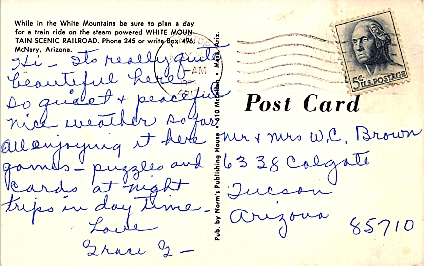 While in the White Mountains be sure to plan a day
for a train ride on the steam powered WHITE MOUN-
TAIN SCENIC RAILROAD. Phone 245 or write Box 496,
McNary, Arizona.
Hi - Its really quite
beautiful here -
so quiet & peaceful
nice weather so far
all enjoying it here
games - puzzles and
cards at night
trips in day time -
Love
Grace G -
AM
Pub. by Norm's Publishing House • 410 • Mesa, Ariz.
5¢ U.S. POSTAGE
Post Card
Mr & Mrs W.C. Brown
6338 Calgate
Tucson
Arizona
85710